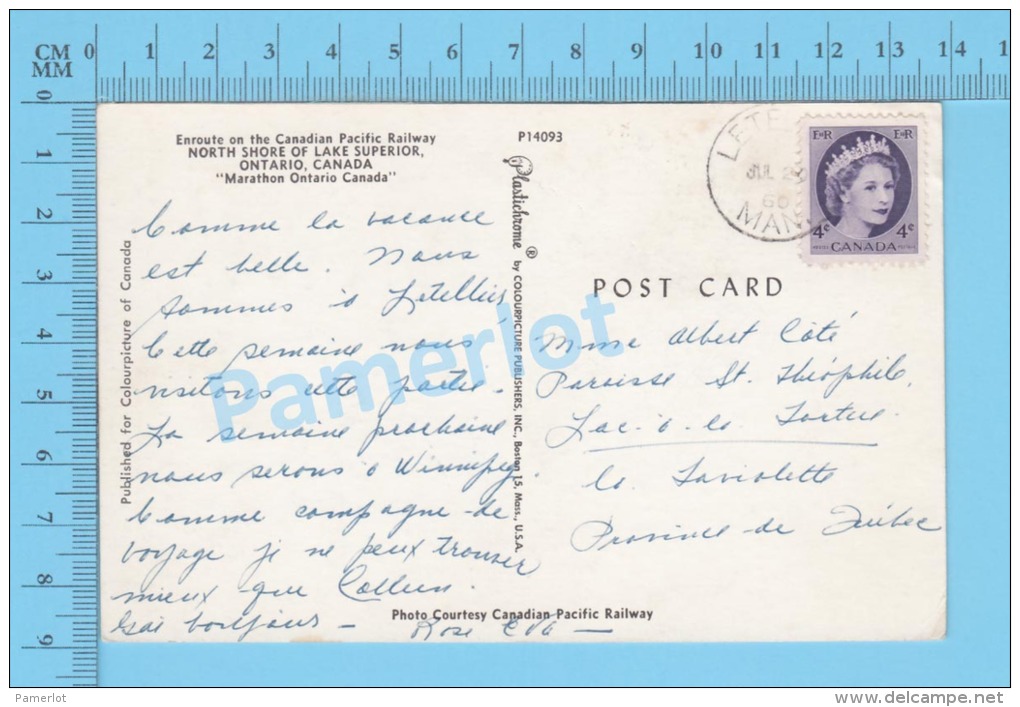 CM 0 1 2 3 4 5 6 7 8 9 10 11 12 13 14 1
MM
0
1
2
3
4
5
6
7
8
9
Enroute on the Canadian Pacific Railway
NORTH SHORE OF LAKE SUPERIOR,
ONTARIO, CANADA
"Marathon Ontario Canada"
Published for Colourpicture of Canada
Comme la vacance
est belle. Nous
sommes à Letellier,
Cette semaine nous
visitons cette partie.
La semaine prochaine
nous serons à Winnipeg.
Comme compagne de
voyage je ne peux trouver
mieux que Colleen.
Gai bonjour –
Rose Eva –
Photo Courtesy Canadian Pacific Railway
P14093
Plastichrome ® by COLOURPICTURE PUBLISHERS, INC., Boston 15, Mass., U.S.A.
LETE
JUL 2
60
MAN
E II R E II R
4¢ 4¢
CANADA
POST CARD
Mme Albert Côté
Paroisse St. Théophile,
Lac-à-la Tortue
Co. Laviolette
Province de Québec
Pamerlot
Pamerlot
www.delcampe.net